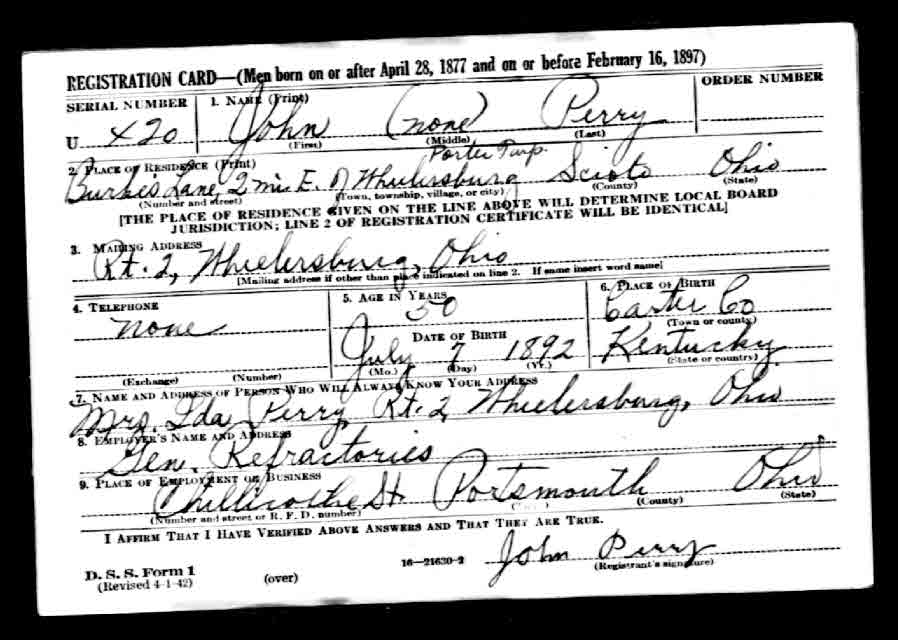 REGISTRATION CARD—(Men born on or after April 28, 1877 and on or before February 16, 1897)
SERIAL NUMBER 1. NAME (Print) ORDER NUMBER
U 420 John (none) Perry
(First) (Middle) (Last)
Porter Twp.
2. PLACE OF RESIDENCE (Print)
Burke's Lane, 2 mi. E. of Wheelersburg Scioto Ohio
(Number and street) (Town, township, village, or city) (County) (State)
[THE PLACE OF RESIDENCE GIVEN ON THE LINE ABOVE WILL DETERMINE LOCAL BOARD
JURISDICTION; LINE 2 OF REGISTRATION CERTIFICATE WILL BE IDENTICAL]
3. MAILING ADDRESS
Rt. 2, Wheelersburg, Ohio
[Mailing address if other than place indicated on line 2. If same insert word same]
4. TELEPHONE 5. AGE IN YEARS 6. PLACE OF BIRTH
none 50 Carter Co
(Town or county)
DATE OF BIRTH
July 7 1892 Kentucky
(Mo.) (Day) (Yr.) (State or country)
(Exchange) (Number)
7. NAME AND ADDRESS OF PERSON WHO WILL ALWAYS KNOW YOUR ADDRESS
Mrs. Ida Perry, Rt. 2, Wheelersburg, Ohio
8. EMPLOYER'S NAME AND ADDRESS
Gen. Refractories
9. PLACE OF EMPLOYMENT OR BUSINESS
Chillicothe St. Portsmouth Ohio
(Number and street or R. F. D. number) (County) (State)
I AFFIRM THAT I HAVE VERIFIED ABOVE ANSWERS AND THAT THEY ARE TRUE.
John Perry
D. S. S. Form 1 (over) 16—21630-2 (Registrant's signature)
(Revised 4-1-42)